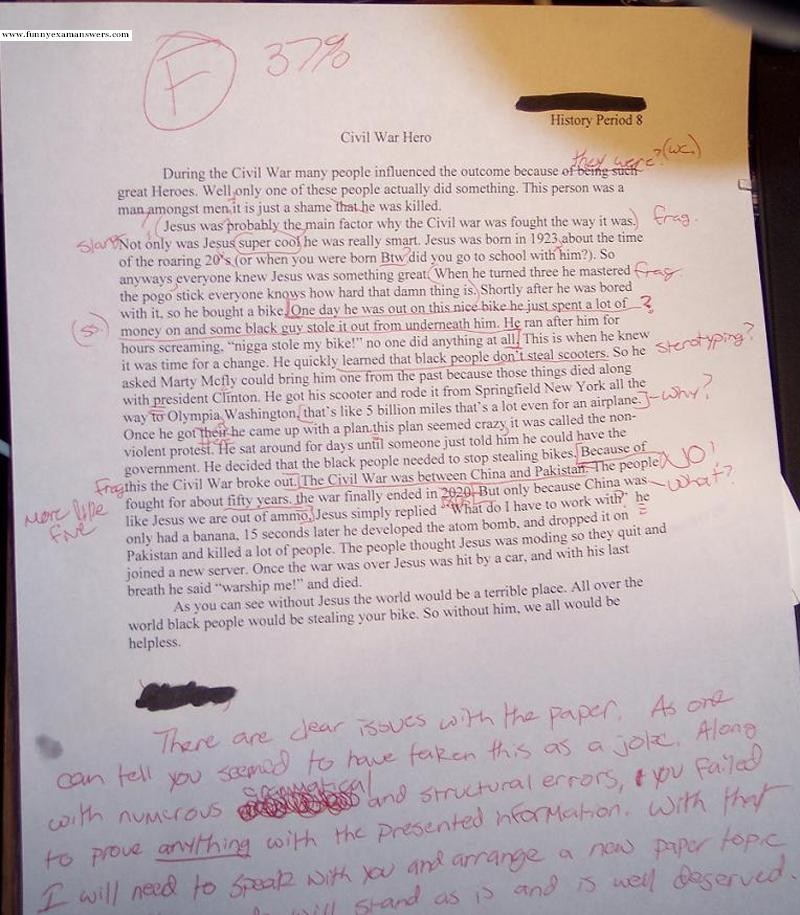 www.funnyexamanswers.com
F 37%
History Period 8
Civil War Hero
they were? (wc.)
During the Civil War many people influenced the outcome because of being such
great Heroes. Well only one of these people actually did something. This person was a
man amongst men it is just a shame that he was killed.
Jesus was probably the main factor why the Civil war was fought the way it was. frag.
slang Not only was Jesus super cool he was really smart. Jesus was born in 1923 about the time
of the roaring 20's (or when you were born Btw did you go to school with him?). So
anyways everyone knew Jesus was something great. When he turned three he mastered frag
the pogo stick everyone knows how hard that damn thing is. Shortly after he was bored
with it, so he bought a bike. One day he was out on this nice bike he just spent a lot of ?
money on and some black guy stole it out from underneath him. He ran after him for
hours screaming, “nigga stole my bike!” no one did anything at all. This is when he knew
it was time for a change. He quickly learned that black people don't steal scooters. So he sterotyping?
asked Marty Mcfly could bring him one from the past because those things died along
with president Clinton. He got his scooter and rode it from Springfield New York all the
way to Olympia Washington, that's like 5 billion miles that's a lot even for an airplane. why?
Once he got their he came up with a plan, this plan seemed crazy it was called the non-
violent protest. He sat around for days until someone just told him he could have the
government. He decided that the black people needed to stop stealing bikes. Because of NO!
Frag this the Civil War broke out. The Civil War was between China and Pakistan. The people what?
fought for about fifty years. the war finally ended in 2020. But only because China was
More like five
like Jesus we are out of ammo, Jesus simply replied “What do I have to work with” he
only had a banana, 15 seconds later he developed the atom bomb, and dropped it on
Pakistan and killed a lot of people. The people thought Jesus was moding so they quit and
joined a new server. Once the war was over Jesus was hit by a car, and with his last
breath he said “warship me!” and died.
As you can see without Jesus the world would be a terrible place. All over the
world black people would be stealing your bike. So without him, we all would be
helpless.
There are clear issues with the paper. As one
can tell you seemed to have taken this as a joke. Along
with numerous grammatical and structural errors, & you failed
to prove anything with the presented information. With that
I will need to speak with you and arrange a new paper topic
will stand as is and is well deserved.